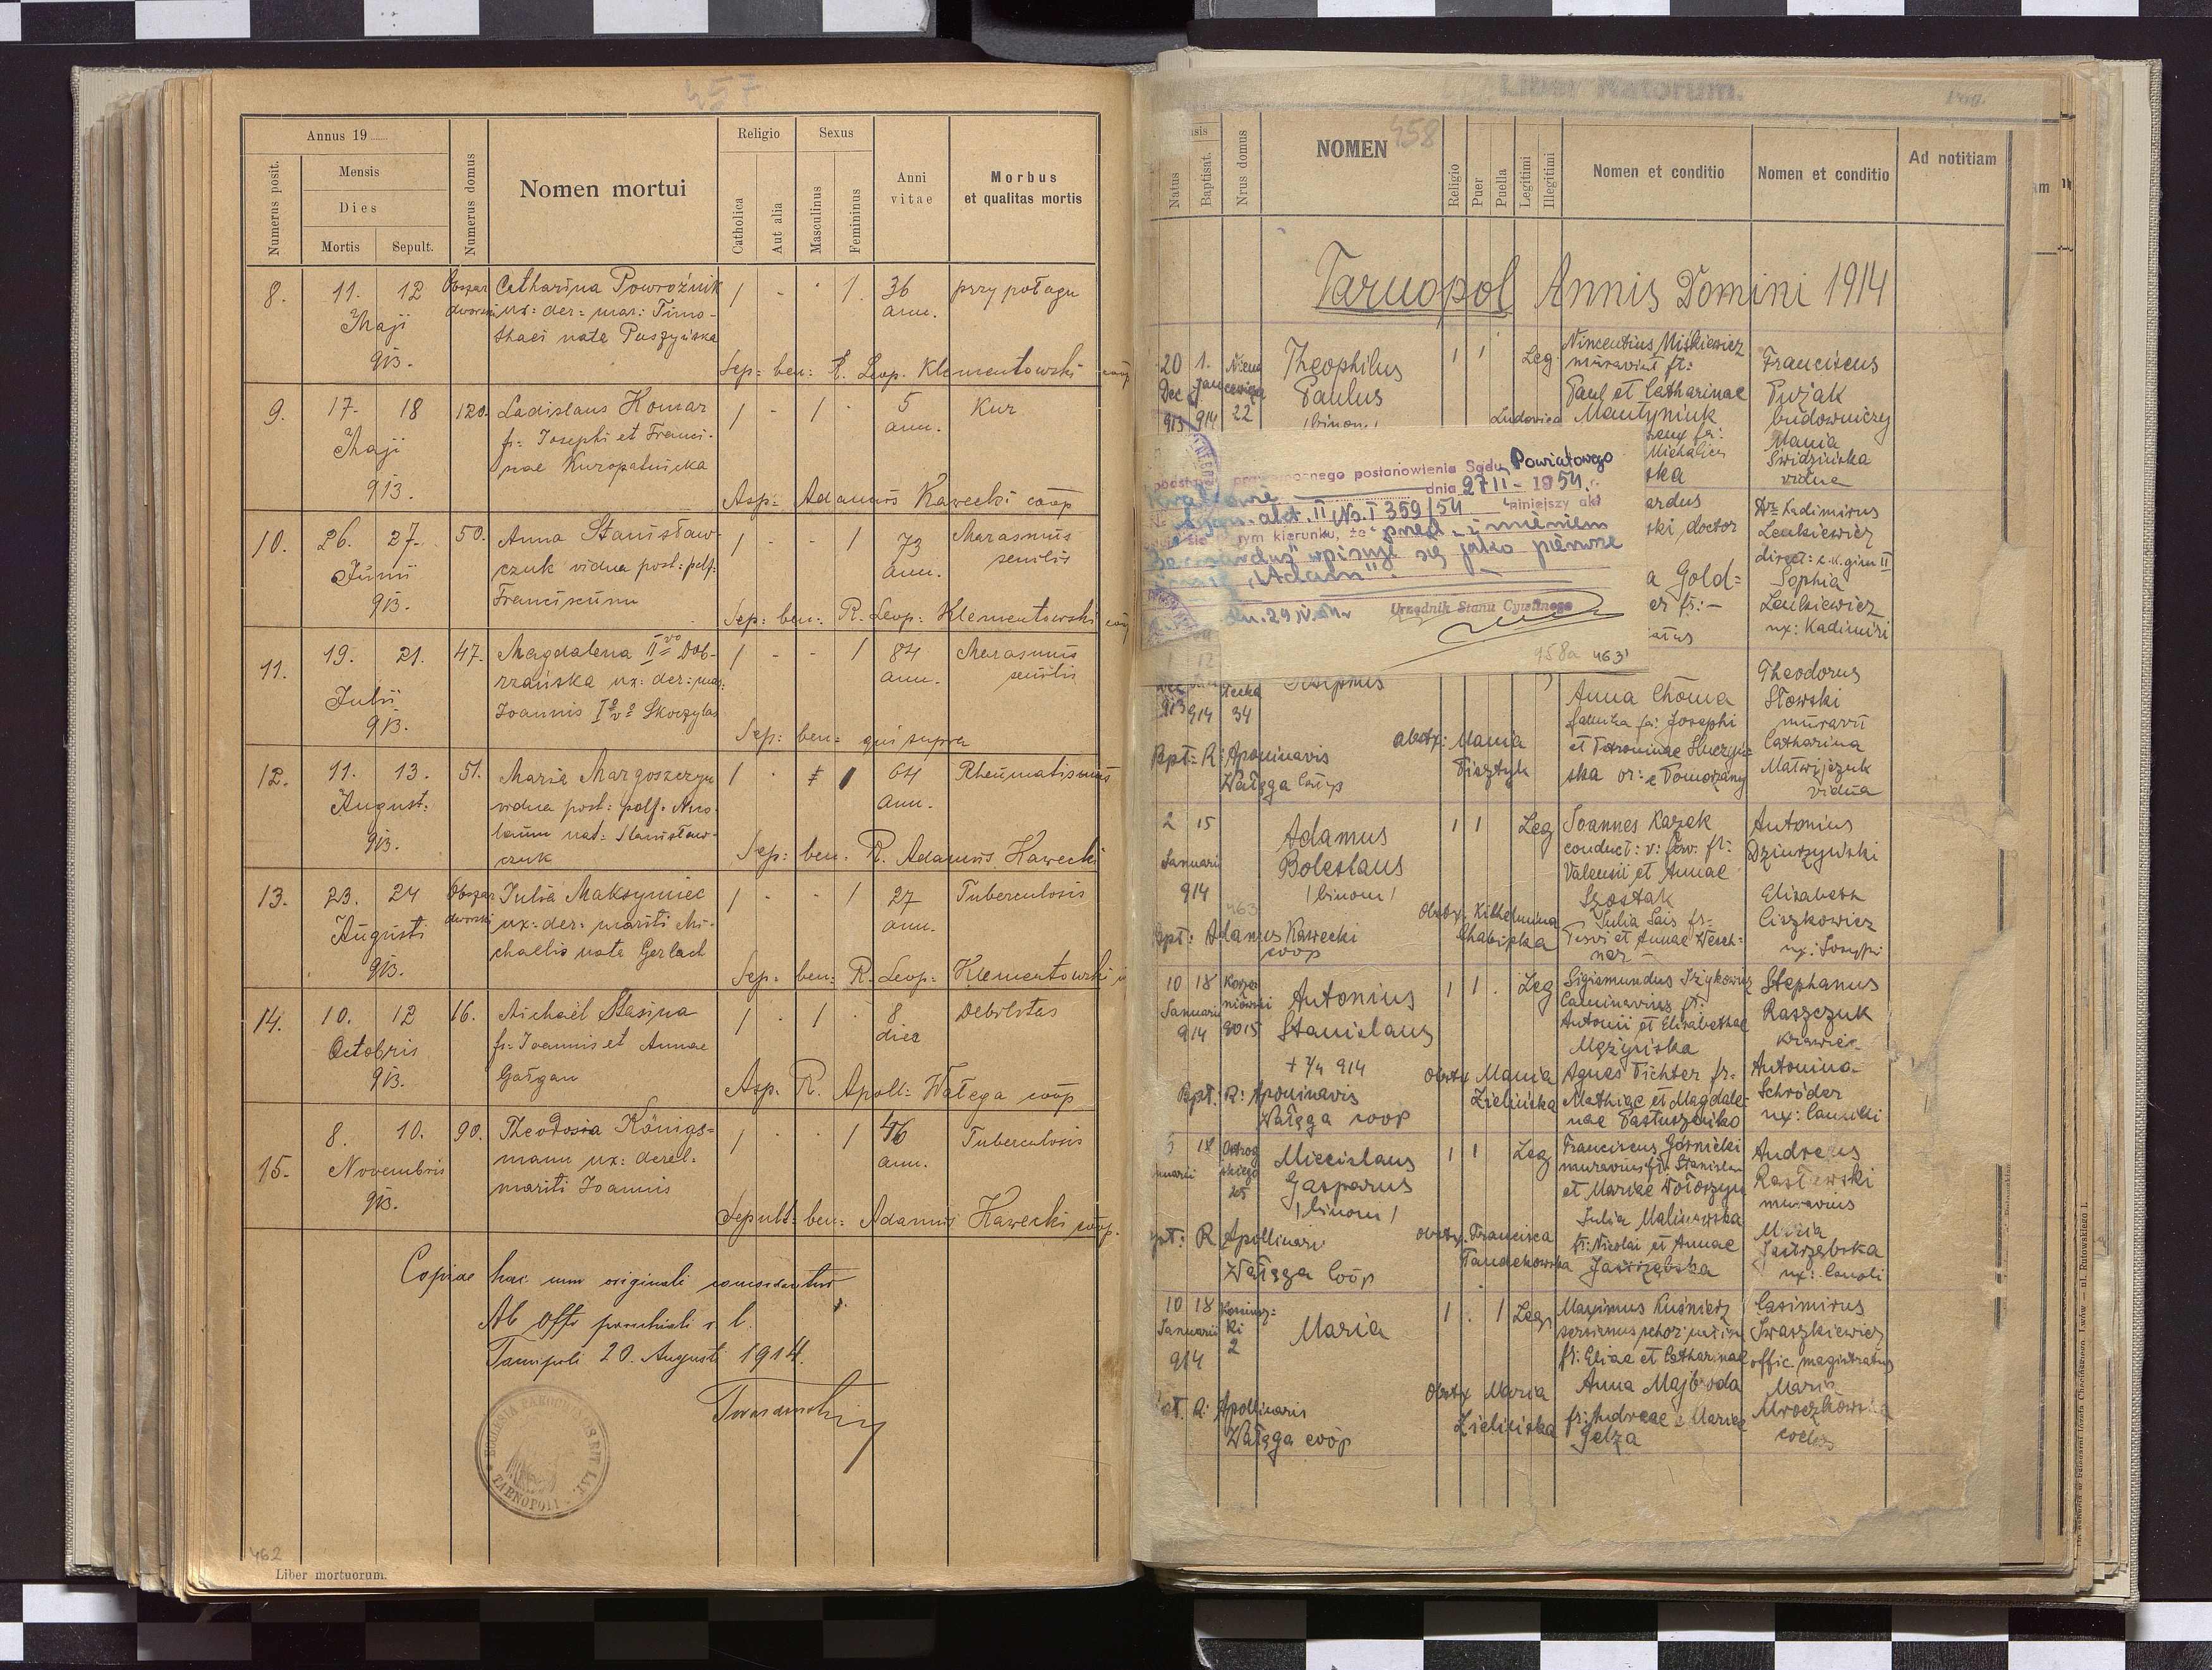 457
Annus 19......
Numerus posit.
Mensis
Dies
Mortis
Sepult.
Numerus domus
Nomen mortui
Religio
Catholica
Aut alia
Sexus
Masculinus
Femininus
Anni
vitae
Morbus
et qualitas mortis
8. 11. 12 Obszar Catharina Powroźnik 1 - - 1. 36 przy połogu
Maji dworski ux: der: mar: Timo- ann.
913. thaei nata Puszyńska
Sep: ben: R. Leop. Klementowski coop
9. 17. 18 120. Ladislaus Komar 1 - 1 - 5 Kur
Maji fr. Josephi et Franci- ann.
913. nae Kuropatnicka
Asp: Adamus Kawecki coop
10. 26. 27. 50. Anna Stanisław- 1 - - 1 73 Marasmus
Junii czuk vidua post: pdf: ann. senilis
913. Franciscum
Sep: ben: R. Leop: Klementowski coop
11. 19. 21. 47. Magdalena II vo Dob- 1 - - 1 84 Marasmus
Julii rzańska ux: der: mar: ann. senilis
913. Joannis I vo Skoczylas
Sep: ben: qui supra
12. 11. 13. 51. Maria Margoszczyn 1 - 1 64 Rheumatismus
August. vidua post: pdf. Nico- ann.
913. laum nat: Stanisław-
czuk
Sep: ben. R. Adamus Kawecki
13. 23. 24 Obszar Julia Maksymiec 1 - - 1 27 Tuberculosis
Augusti dworski ux: der: mariti Mi- ann.
913. chaelis nata Gerlach
Sep: ben: R. Leop: Klementowski
14. 10. 12 16. Michael Stasina 1 - 1 - 8 Debilitas
Octobris fr: Joannis et Annae dies
913. Gargan
Asp. R. Apoll: Wałęga coop
15. 8. 10. 90. Theodosia Königs- 1 - - 1 46 Tuberculosis
Novembris mann ux: derel. ann.
913. mariti Joannis
Sepult: ben: Adamus Kawecki coop.
Copiae hae cum originali concordantur
Ab offo parochiali r. l.
Tarnopoli 20. Augusti 1914.
PAROCHIALIS RIT. LAT.
TARNOPOLI
462
Liber mortuorum.
Liber Natorum.
Pag.
458
Natus
Baptisat.
Nrus domus
NOMEN
Religio
Puer
Puella
Legitimi
Illegitimi
Nomen et conditio
Nomen et conditio
Ad notitiam
Tarnopol Annis Domini 1914
20 1. Theophilus 1 1 Leg. Vincentius Miśkiewicz Franciscus
Dec Jan Paulus murarius fr: Pujak
913 914 22 /binom/ Paul et Catharinae budowniczy
Ludovica Mantyniuk Maria
Michalicz Świdzińska
ska vidua
przy pomocnego postanowienia Sądu Powiatowego
dnia 27 II - 1954 r.
Sygn. akt. II Ns. I 359/54 niniejszy akt
tym kierunku, że przed imieniem
"Bernardus" wpisuje się jako pierwsze
imię "Adam".
dn. 29 IV 54 r Urzędnik Stanu Cywilnego
958a 463
ardus Dr Ladimirus
ski doctor Lenkiewicz
direct: c.k. gimn II
a Gold= Sophia
er fr:- Lenkiewicz
ux: Kadimiri
913 914 34
Anna Choma Theodorus
fa: Josephi Słowski
murarii
obstx: Maria Catharina
Bpt: R: Apolinaris Fisztyk ska or: e Pomorzany Matwijczuk
Wałęga Coop vidua
2 15 Adamus 1 1 Leg Joannes Kazek Antonius
Januarii Boleslaus conduct: v: ferr. fr: Dziurzyński
914 /binom/ Valentii et Annae
Szostak Elisabeth
463 obstx. Wilhelmina Julia Sais fr- Ciszkowicz
Bpt: Adamus Kawecki Chabipka ux: Josephi
coop
10 18 Antonius 1 1 . Leg Sigismundus Irzykowicz Stephanus
Januarii Stanislaus Caminarius fr: Raszczuk
914 Antonii et Elisabethae krawiec
Mężyńska
+ 7/4 914 obstx Maria Agnes Tichter fr- Antonina
Bpt. R: Apolinaris Zielińska Mathiae et Magdale- Schröder
Wałęga coop nae Pastuszenko ux: Camilli
5 18 Ostrog Miecislaus 1 1 Leg Franciscus Górnicki Andreas
nuarii skiego Gasparus murarius fr. Stanislai Rastawski
25 /binom/ et Mariae Wołoszyn murarius
Julia Malinowska Maria
pt: R. Apollinaris obstx. Francisca fr: Nicolai et Annae Jastrzębska
Wałęga Coop Jastrzębska ux: Caroli
10 18 Maria 1 . 1 Leg. Maximus Kuśnierz Casimirus
Januarii ki Iwaszkiewicz
914 2 fr: Eliae et Catharinae offic. magistratus
obstx Maria Anna Majbroda Maria
pt. R: Apollinaris Zielińska fr: Andreae e Mariae Mroczkowska
Wałęga coop Jelza coelebs